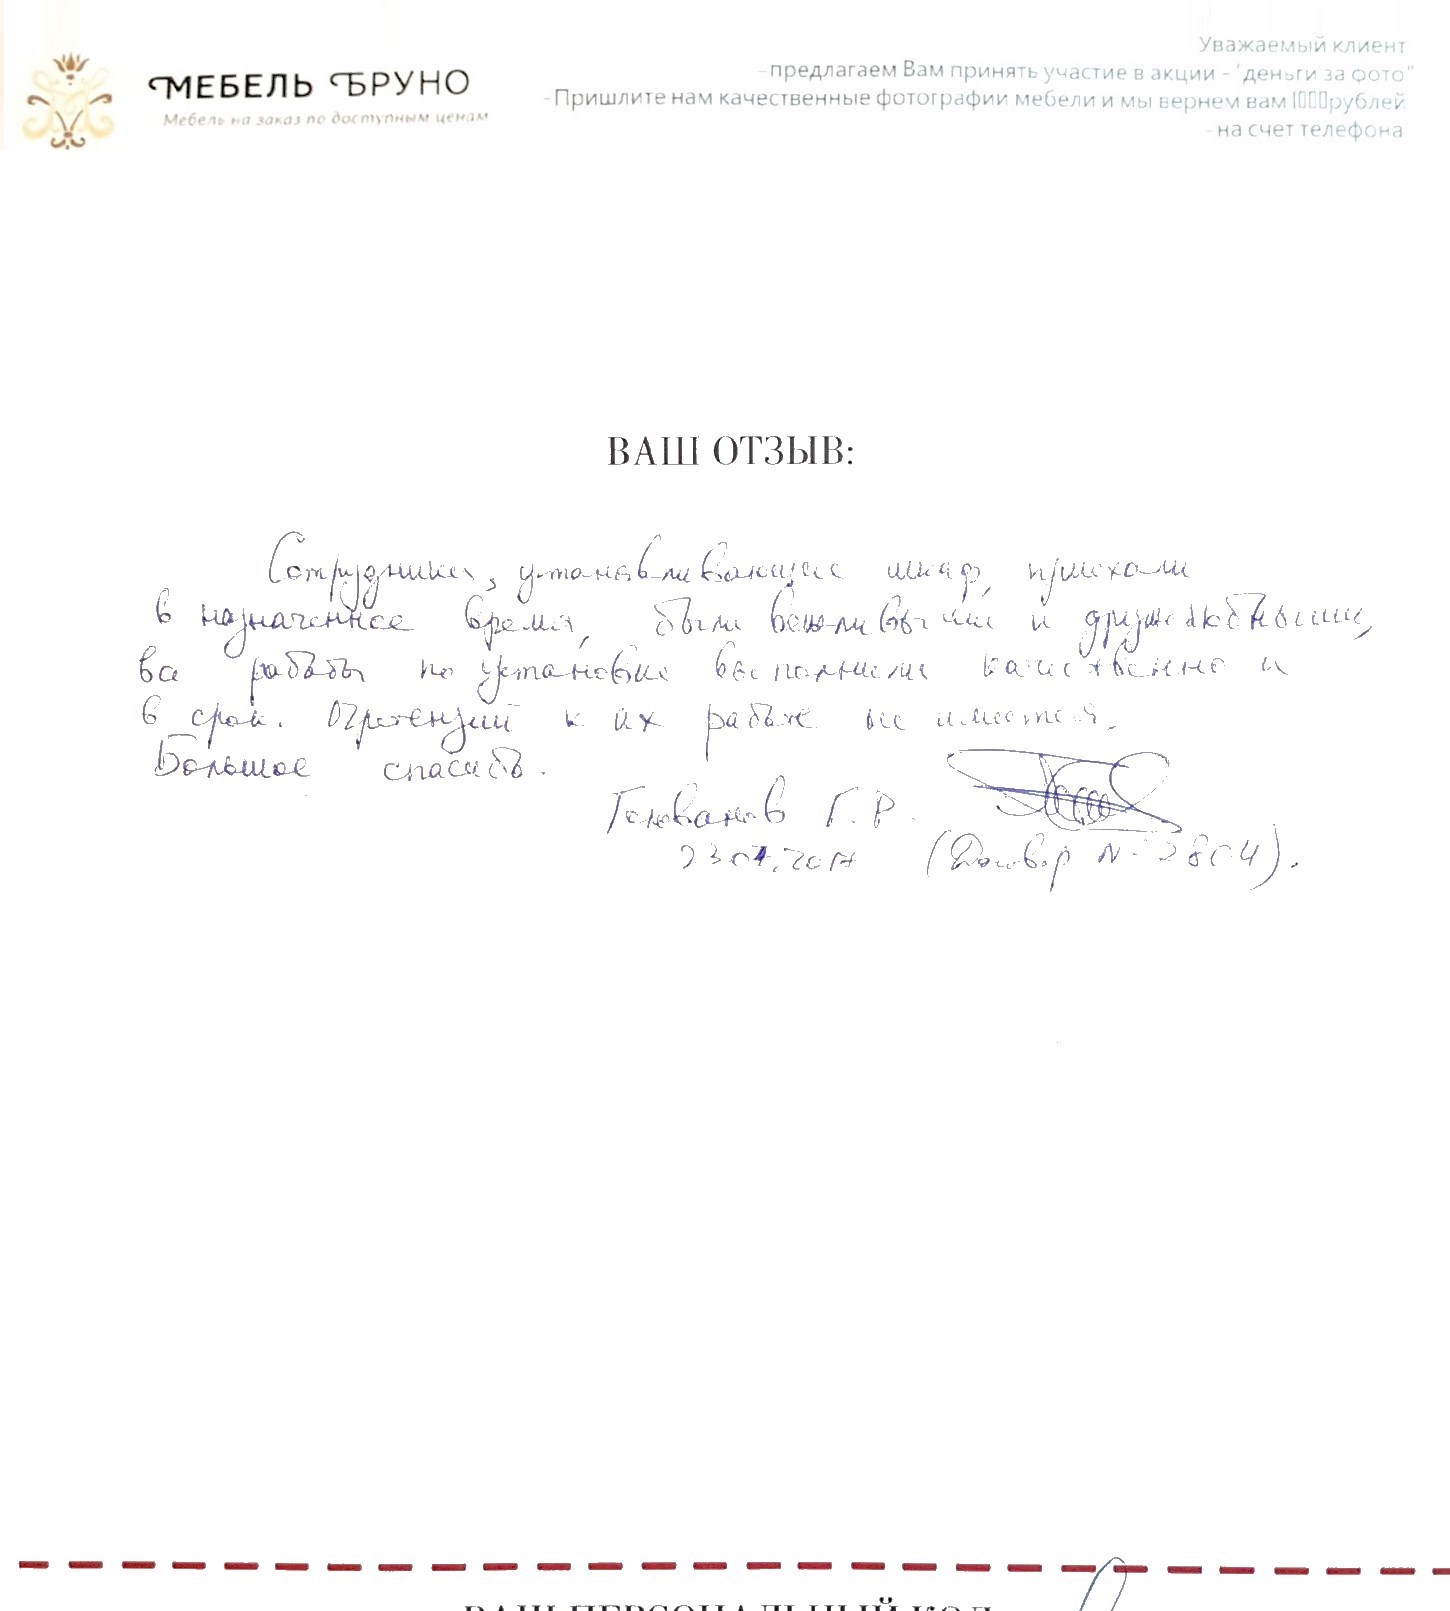 Уважаемый клиент
МЕБЕЛЬ БРУНО
-предлагаем Вам принять участие в акции - "деньги за фото"
Мебель на заказ по доступным ценам
-Пришлите нам качественные фотографии мебели и мы вернем вам 1000рублей
-на счет телефона
ВАШ ОТЗЫВ:
Сотрудники, устанавливающие шкаф, приехали
в назначенное время, были вежливыми и дружелюбными,
все работы по установке выполнили качественно и
в срок. Претензий к их работе не имеется.
Большое спасибо.
Голованов Г.Р.
23.07.2017 (Договор № 2804).
ВАШ ПЕРСОНАЛЬНЫЙ КОД